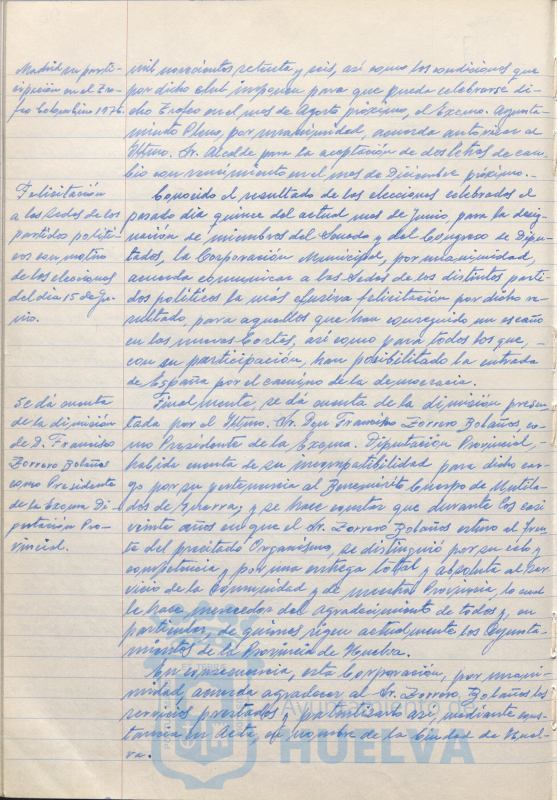 Madrid su parti-
cipación en el Tro-
feo Colombino 1976.
mil novecientos setenta y seis, así como las condiciones que
por dicho club imponen para que pueda celebrarse di-
cho Trofeo en el mes de Agosto próximo, el Excmo. Ayunta-
miento Pleno, por unanimidad, acuerda autorizar al
Iltmo. Sr. Alcalde para la aceptación de dos letras de cam-
bio con vencimiento en el mes de Diciembre próximo.-
Felicitación
a las sedes de los
partidos políti-
cos con motivo
de las elecciones
del día 15 de Ju-
nio.
Conocido el resultado de las elecciones celebradas el
pasado día quince del actual mes de Junio, para la desig-
nación de miembros del Senado y del Congreso de Dipu-
tados, la Corporación Municipal, por unanimidad,
acuerda comunicar a las Sedes de los distintos parti-
dos políticos la más efusiva felicitación por dicho re-
sultado, para aquellos que han conseguido un escaño
en las nuevas Cortes, así como para todos los que,
con su participación, han posibilitado la entrada
de España por el camino de la democracia.
Se dá cuenta
de la dimisión
de D. Francisco
Zorrero Bolaños
como Presidente
de la Excma. Di-
putación Pro-
vincial.
Finalmente, se dá cuenta de la dimisión presen-
tada por el Iltmo. Sr. Don Francisco Zorrero Bolaños, co-
mo Presidente de la Excma. Diputación Provincial,
habida cuenta de su incompatibilidad para dicho car-
go por su pertenencia al Benemérito Cuerpo de Mutila-
dos de Guerra, y se hace constar que durante los casi
veinte años en que el Sr. Zorrero Bolaños estuvo al fren-
te del precitado Organismo, se distinguió por su celo y
competencia y por una entrega total y absoluta al ser-
vicio de la Comunidad y de nuestra Provincia, lo cual
le hace merecedor del agradecimiento de todos y, en
particular, de quienes rigen actualmente los Ayunta-
mientos de la Provincia de Huelva.
En consecuencia, esta Corporación, por unani-
midad, acuerda agradecer al Sr. Zorrero Bolaños los
servicios prestados y patentizarlo así, mediante cons-
tancia en Acta, en nombre de la Ciudad de Huel-
va.
Ayuntamiento de
HUELVA